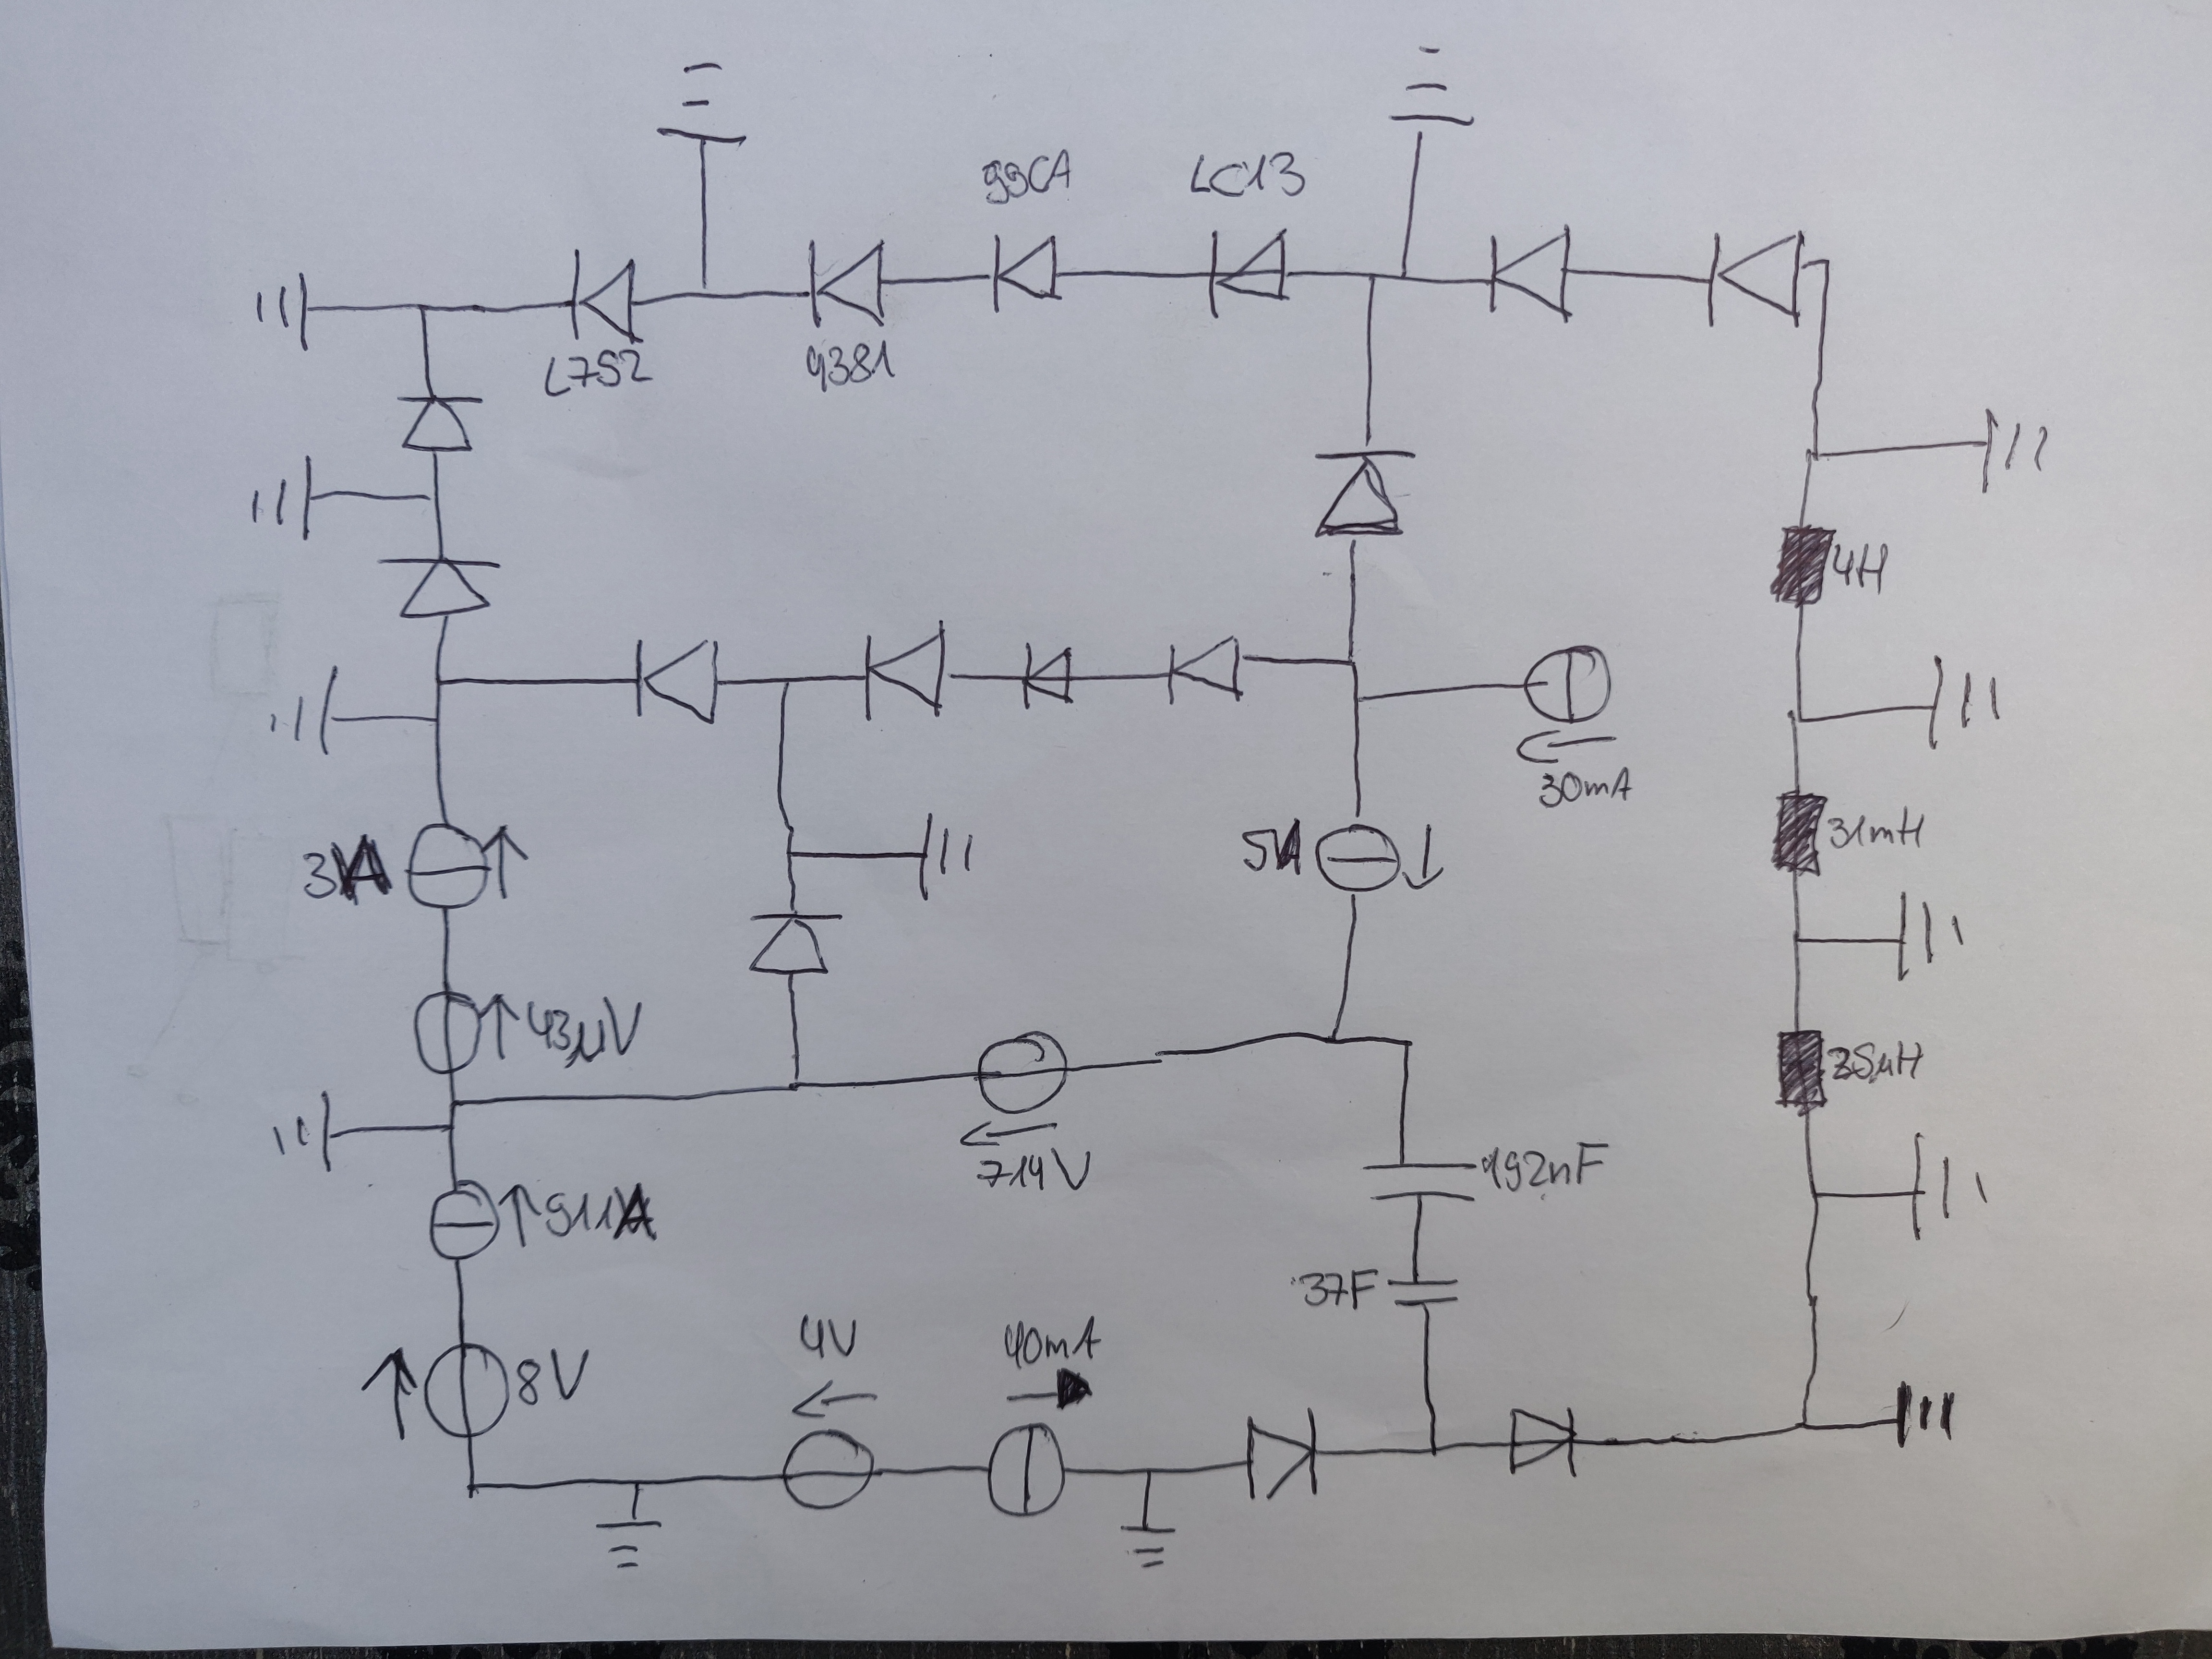 99CA
LC13
L7S2
9381
4H
30mA
31mH
3A
5A
43µV
35µH
714V
192nF
911A
37F
4V
40mA
8V